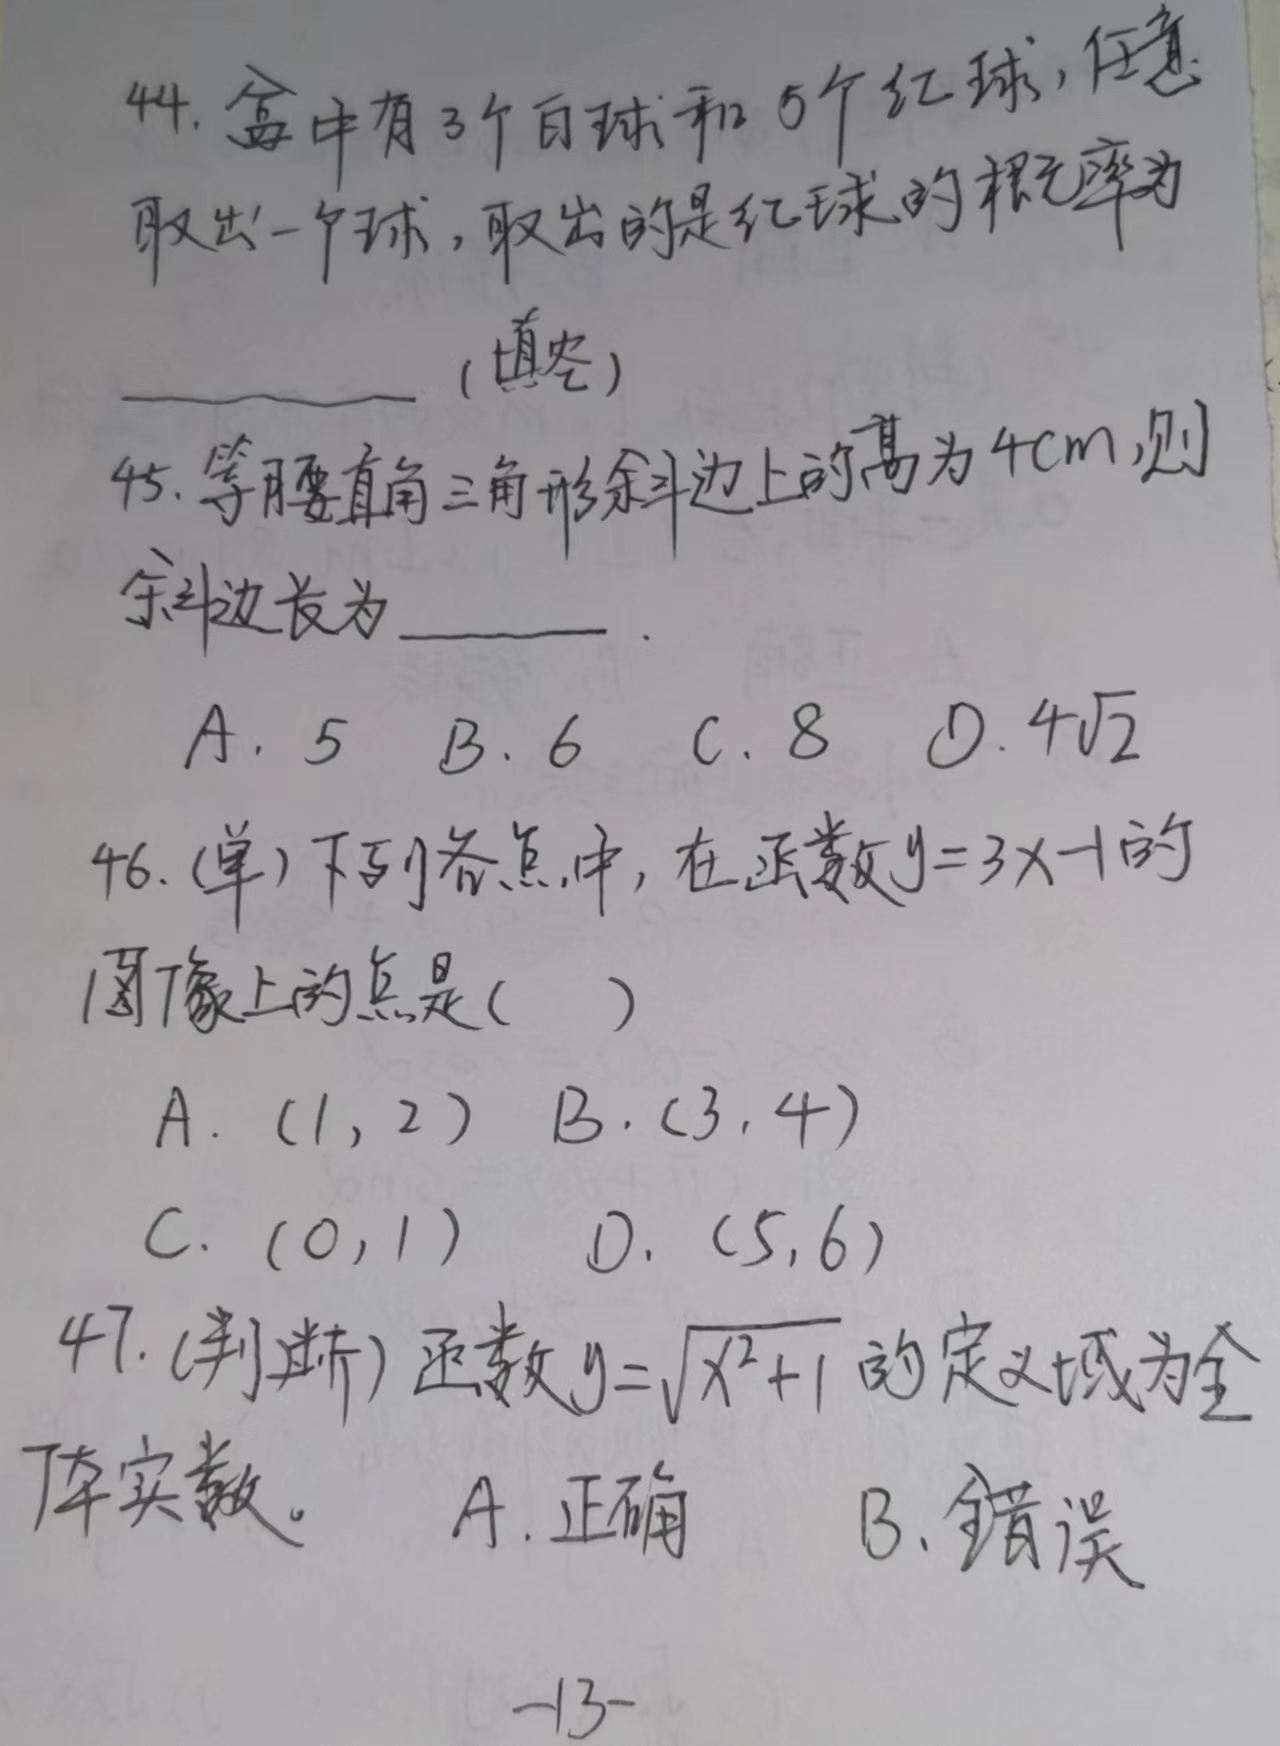 44. 盒中有3个白球和5个红球,任意
取出一个球,取出的是红球的概率为
________ (填空)
45. 等腰直角三角形斜边上的高为4cm,则
斜边长为________.
A. 5 B. 6 C. 8 D. 4√2
46. (单) 下列各点中,在函数y=3x-1的
图像上的点是( )
A. (1, 2) B. (3, 4)
C. (0, 1) D. (5, 6)
47. (判断) 函数y=√(x²+1) 的定义域为全
体实数。 A. 正确 B. 错误
-13-